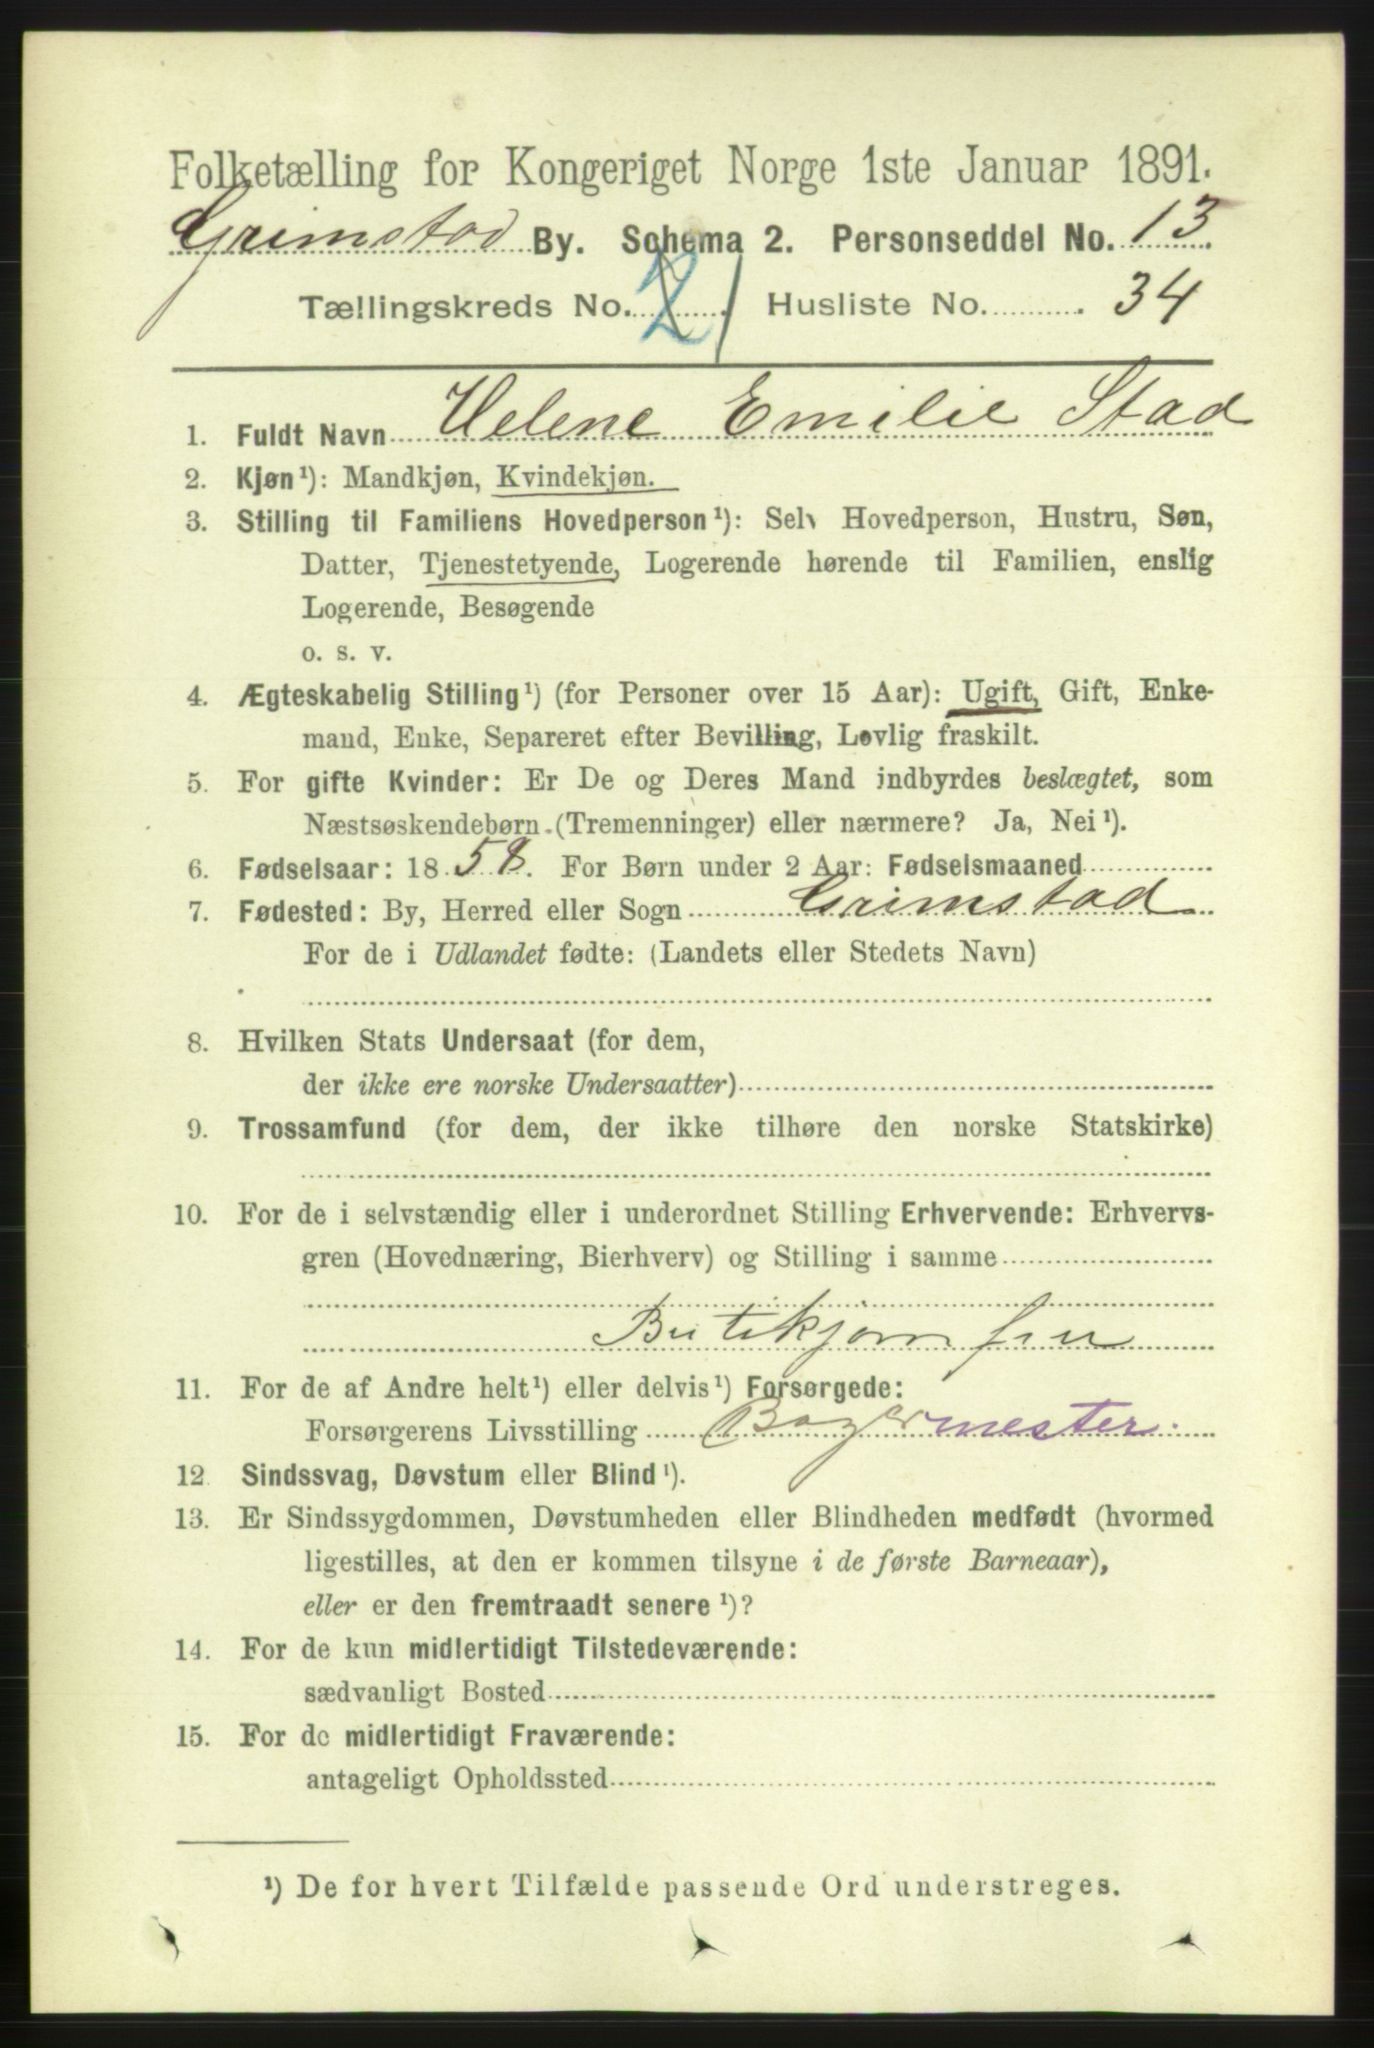 Folketælling for Kongeriget Norge 1ste Januar 1891.
Grimstad By. Schema 2. Personseddel No. 13
Tællingskreds No. 2 1 Husliste No. 34
1. Fuldt Navn Helene Emilie Stad
2. Kjøn¹): Mandkjøn, Kvindekjøn.
3. Stilling til Familiens Hovedperson¹): Selv Hovedperson, Hustru, Søn,
Datter, Tjenestetyende, Logerende hørende til Familien, enslig
Logerende, Besøgende
o. s. v.
4. Ægteskabelig Stilling¹) (for Personer over 15 Aar): Ugift, Gift, Enke-
mand, Enke, Separeret efter Bevilling, Lovlig fraskilt.
5. For gifte Kvinder: Er De og Deres Mand indbyrdes beslægtet, som
Næstsøskendebørn (Tremenninger) eller nærmere? Ja, Nei¹).
6. Fødselsaar: 1858. For Børn under 2 Aar: Fødselsmaaned
7. Fødested: By, Herred eller Sogn Grimstad
For de i Udlandet fødte: (Landets eller Stedets Navn)
8. Hvilken Stats Undersaat (for dem,
der ikke ere norske Undersaatter)
9. Trossamfund (for dem, der ikke tilhøre den norske Statskirke)
10. For de i selvstændig eller i underordnet Stilling Erhvervende: Erhvervs-
gren (Hovednæring, Bierhverv) og Stilling i samme
Butikjomfru
11. For de af Andre helt¹) eller delvis¹) Forsørgede:
Forsørgerens Livsstilling Bagermester.
12. Sindssvag, Døvstum eller Blind¹).
13. Er Sindssygdommen, Døvstumheden eller Blindheden medfødt (hvormed
ligestilles, at den er kommen tilsyne i de første Barneaar),
eller er den fremtraadt senere¹)?
14. For de kun midlertidigt Tilstedeværende:
sædvanligt Bosted
15. For de midlertidigt Fraværende:
antageligt Opholdssted
¹) De for hvert Tilfælde passende Ord understreges.